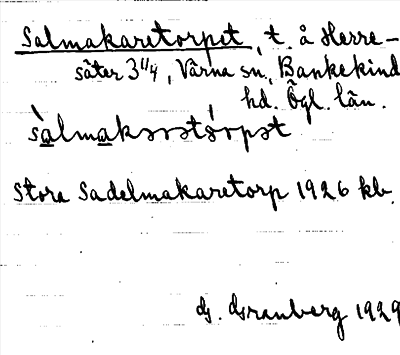 Salmakaretorpet, t. å Herre-
säter 3 1/4, Värna sn, Bankekind
hd. Ögl. län.
sàlmakərətsórpət
Stora Sadelmakaretorp 1926 kb.
1929